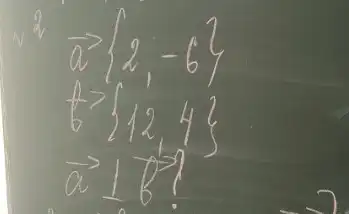 √2
a⃗ {2, -6}
b⃗ {12, 4}
a⃗ ⊥ b⃗ ?